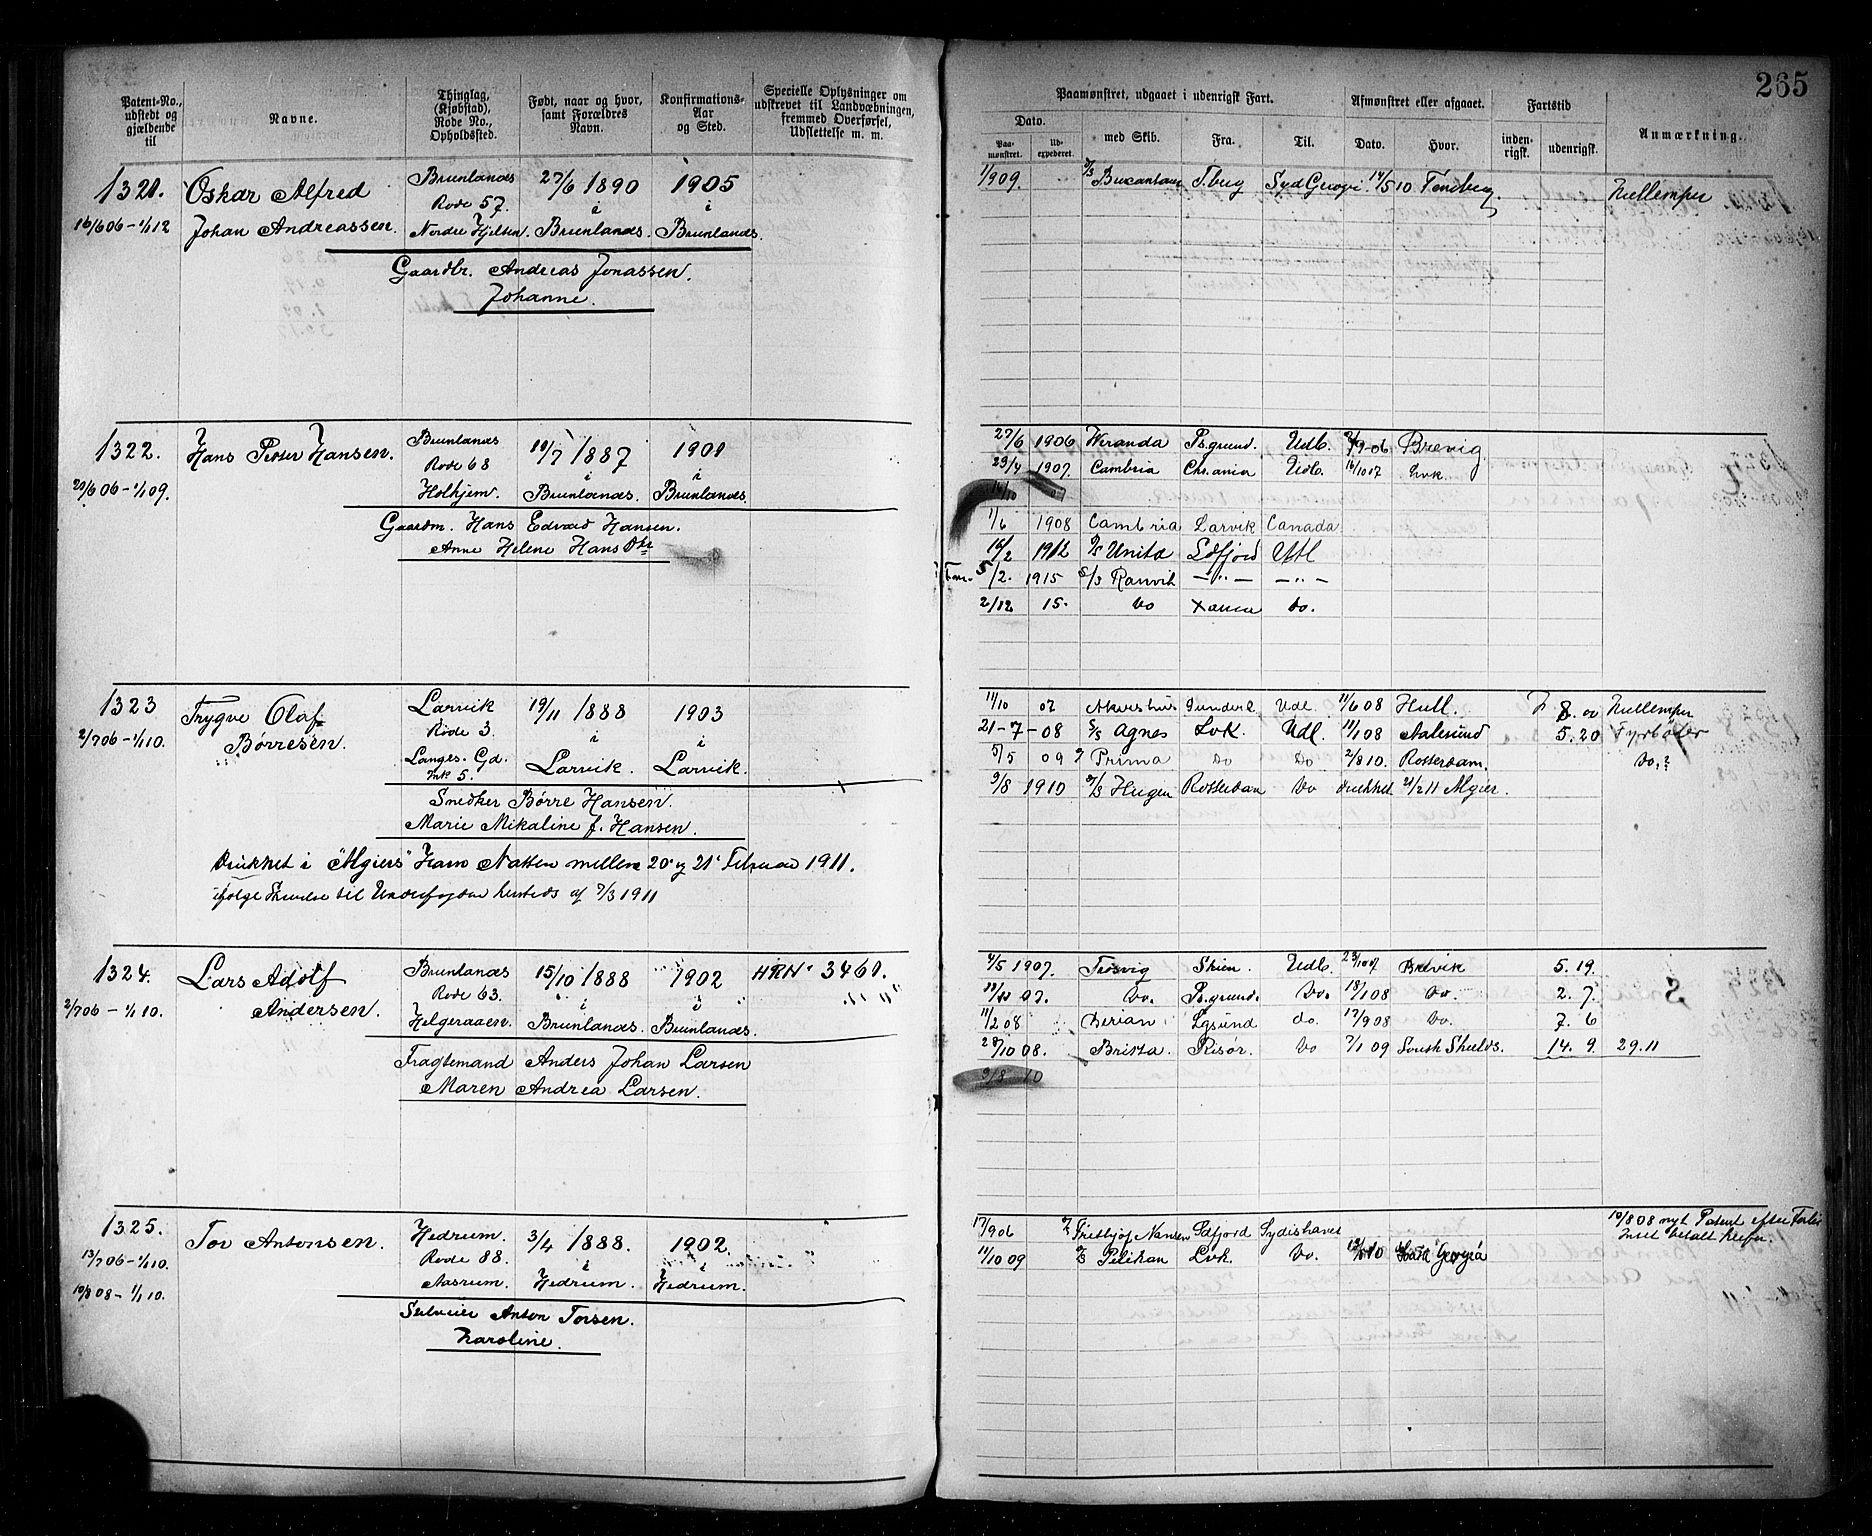 265
Patent-No., udstedt og gjældende til
Navne.
Thinglag, (Kjøbstad), Rode No., Opholdssted.
Født, naar og hvor, samt Forældres Navn.
Konfirmations-Aar og Sted.
Specielle Oplysninger om udskrevet til Landvæbningen, fremmed Overførsel, Udslettelse m. m.
Paamønstret, udgaaet i udenrigsk Fart.
Afmønstret eller afgaaet.
Fartstid
Anmærkning.
Dato.
Paamønstret.
Udexpederet.
med Skib.
Fra.
Til.
Dato.
Hvor.
indenrigsk.
udenrigsk.
1321. Oskar Alfred Brunlanæs 27/6 1890 1905
Rode 57. i i
16/6 06 - 1/1 12 Johan Andreassen. Nordre Hjelsen. Brunlanæs. Brunlanæs.
Gaardbr. Andreas Jonassen.
Johanne.
1/9 09. T.berg Syd Georgi. 14/5 10 Tønsberg
1322. Hans Petter Hansen. Brunlanæs 10/7 1887 1901
Rode 68 i i
29/6 06 - 1/1 09. Holhjem. Brunlanæs. Brunlanæs.
Gaardm. Hans Edvard Hansen.
Anne Helene Hans Dtr
27/6 1906 Weranda Ps.grund. Udl. 06 Brevig.
29/4 1907. Cambria Chr.ania Udl. 16/10 07 Lvk
16/10 07
1/6 1908 Cambria Larvik Canada
16/2 1912 S/S Unita Sdfjord Udl
5/2. 1915 S/S Ranvik — " — — " —
2/12 15. Do Do.
1323 Trygve Olaf Larvik 19/11 1888 1903
Børresen. Rode 3. i i
2/7 06 - 1/1 10. Langes. Gd. Larvik. Larvik.
Mk 5.
Snedker Børre Hansen.
Marie Mikaline f. Hansen.
Druknet i "Algiers" Havn Natten mellem 20 og 21 Februar 1911.
ifølge Skrivelse til Underfogden hersteds af 7/3 1911
11/10 07 Akershus Sunderl. Udl. 11/6 08 Hull. 8. 00 Mellempr
21-7-08 S/S Agnes Lvk. Udl. 11/1 08 Aalesund 5. 20 Fyrbøter
5/5 09 Prima Do Do. 2/8 10. Rotterdam. Do.
9/8 1910 Hugin Rotterdam Do druknet 21/2 11 Algier.
1324. Lars Adolf Brunlanæs 15/10 1888 1902 HRN 3461.
Andersen. Rode 63. " i
2/7 06 - 1/1 10. Helgeraaen. Brunlanæs. Brunlanæs.
Fragtemand Anders Johan Larsen
Maren Andrea Larsen.
4/5 1907. Trosvig Skien. Udl. 23/10 07 Brevik 5. 19.
07. Do. Ps.grund. Do. 18/1 08 Do. 2. 7.
11/2 08 Derian. Lgsund do. 17/9 08 Do. 7. 6
28/10 08. Britta. Risør. Do 7/1 09 South Shields. 14. 9. 29.11
9/8 10
1325. Tor Antonsen. Hedrum. 3/4 1888. 1902.
13/7 06 - 1/1 10. Rode 88. i i
10/8 08 - 1/1 10. Aasrum. Hedrum. Hedrum.
Selveier Anton Torsen.
Karoline.
17/9 06 Fridtjof Nansen Sdfjord Sydishavet
10/8 08 nyt Patent efter Forlis
Intet betalt herfor.
11/10 09 Pelikan Lvk. Do. South Georgia